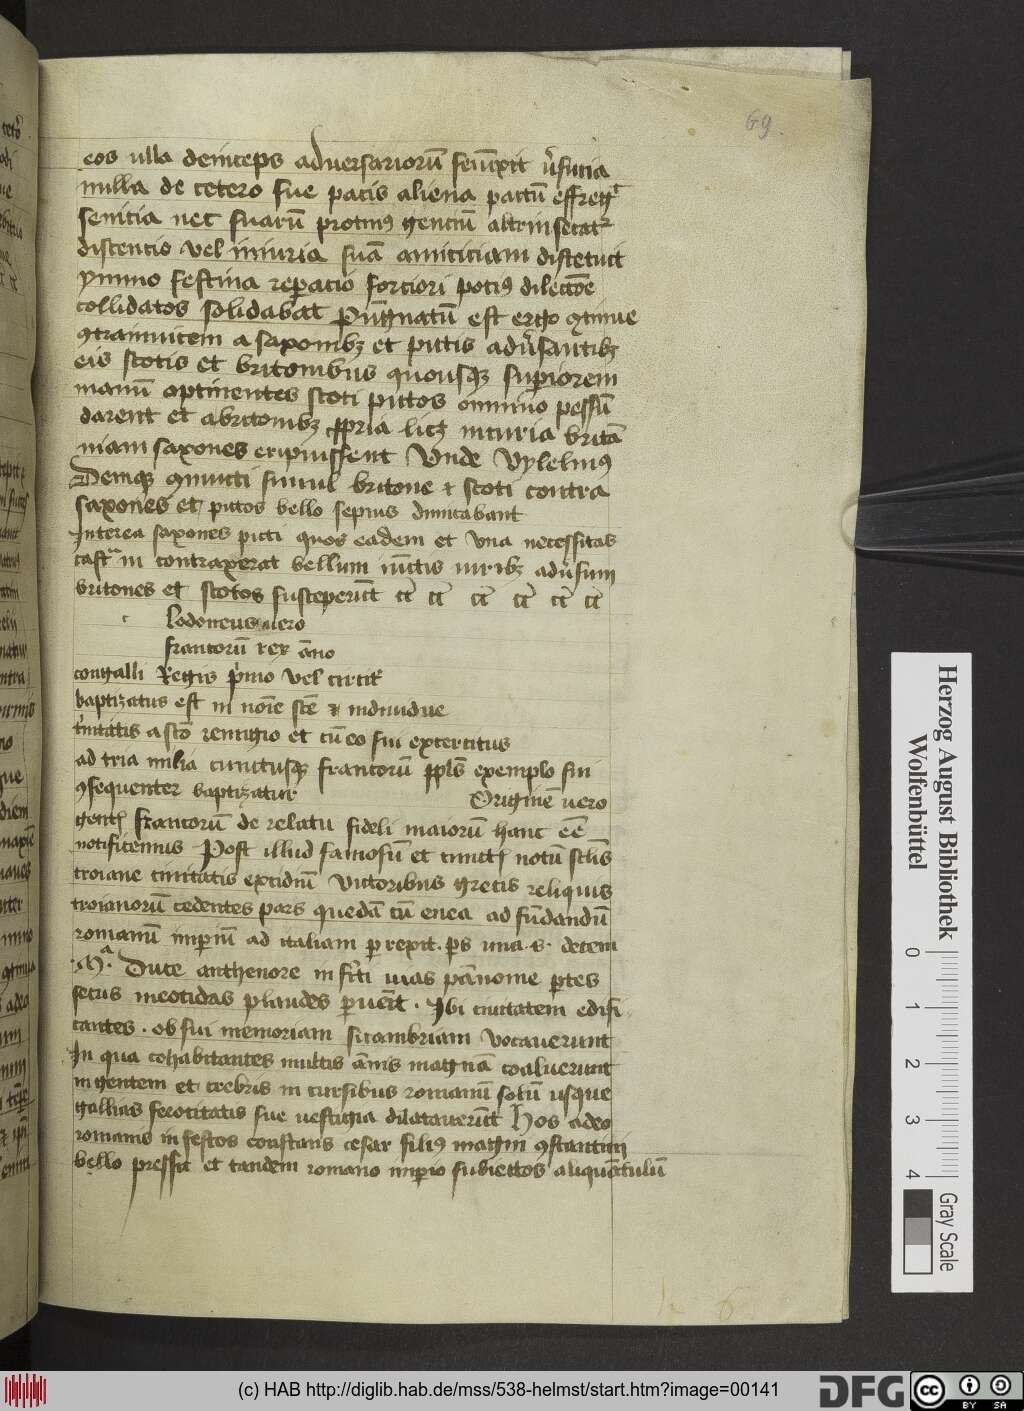 69.
eos ulla deinceps adversariorū seiūxit v̓sucia
nulla de cetero sue pacis aliena pactū effreg
sevicia nec suarū protinꝰ genciū
distencio vel iniuria suā amiciciam distetuit
ymmo festina reparacio forciori potiꝰ dilectōe
collidatos solidabat Pūgnatū est ergo ꝯtinue
a saxonibꝫ et pictis adv̓santibꝫ
eis scotis et britonibus quousqꝫ superiorem
manū optinentes scoti pictos omnino pessū
darent et a britonibꝫ ꝓpria licꝫ incuria britā
niam saxones eripuissent Unde Vylelmꝰ
Deniqꝫ ꝯiuncti simul britone et scoti contra
saxones et pictos bello sepius dimicabant
Interea saxones picti quos eadem et una necessitas
castra in contraxerat bellum iūctis viribꝫ adv̓sum
britones et scotos susceperūt
lodoneus vero
francorū rex āno
congalli Regis p̓mo vel circit̓
baptizatus est in noīe scē et individue
t̓nitatis a scō remigio et cū eo sui excercitus
ad tria milia cunctusqꝫ francorū ppl̄s exemplo sui
ꝯsequenter baptizatur Originē vero
gent francorū de relatu fideli maiorū hanc eē
notificemus Post illud famosū et cunct notū sclīs
troiane civitatis excidiū victoribus grecis reliquis
troianorū cedentes pars quedā cū enea ad fūdandū
romanū imperiū ad italiam perrexit. ps una .s. decem
.Mᵃ. Duce anthenore in fīti vias pānonie partes
secus meotidas plaudes pervēit. Ibi civitatem edifi
cantes. ob sui memoriam sicambriam vocaverunt
In qua cohabitantes multis ānis magnā coaluerunt
in gentem et crebris in cursibus romanū solū usque
gallias ferocitatis sue vestigia dilataverūt Hos adeo
romanis in festos constans cesar filiꝰ magni ꝯstantini
bello pressit et tandem romano imperio subiectos aliquātulū
Herzog August Bibliothek
Wolfenbüttel
0 1 2 3 4
Gray Scale
(c) HAB http://diglib.hab.de/mss/538-helmst/start.htm?image=00141
DFG
cc BY SA